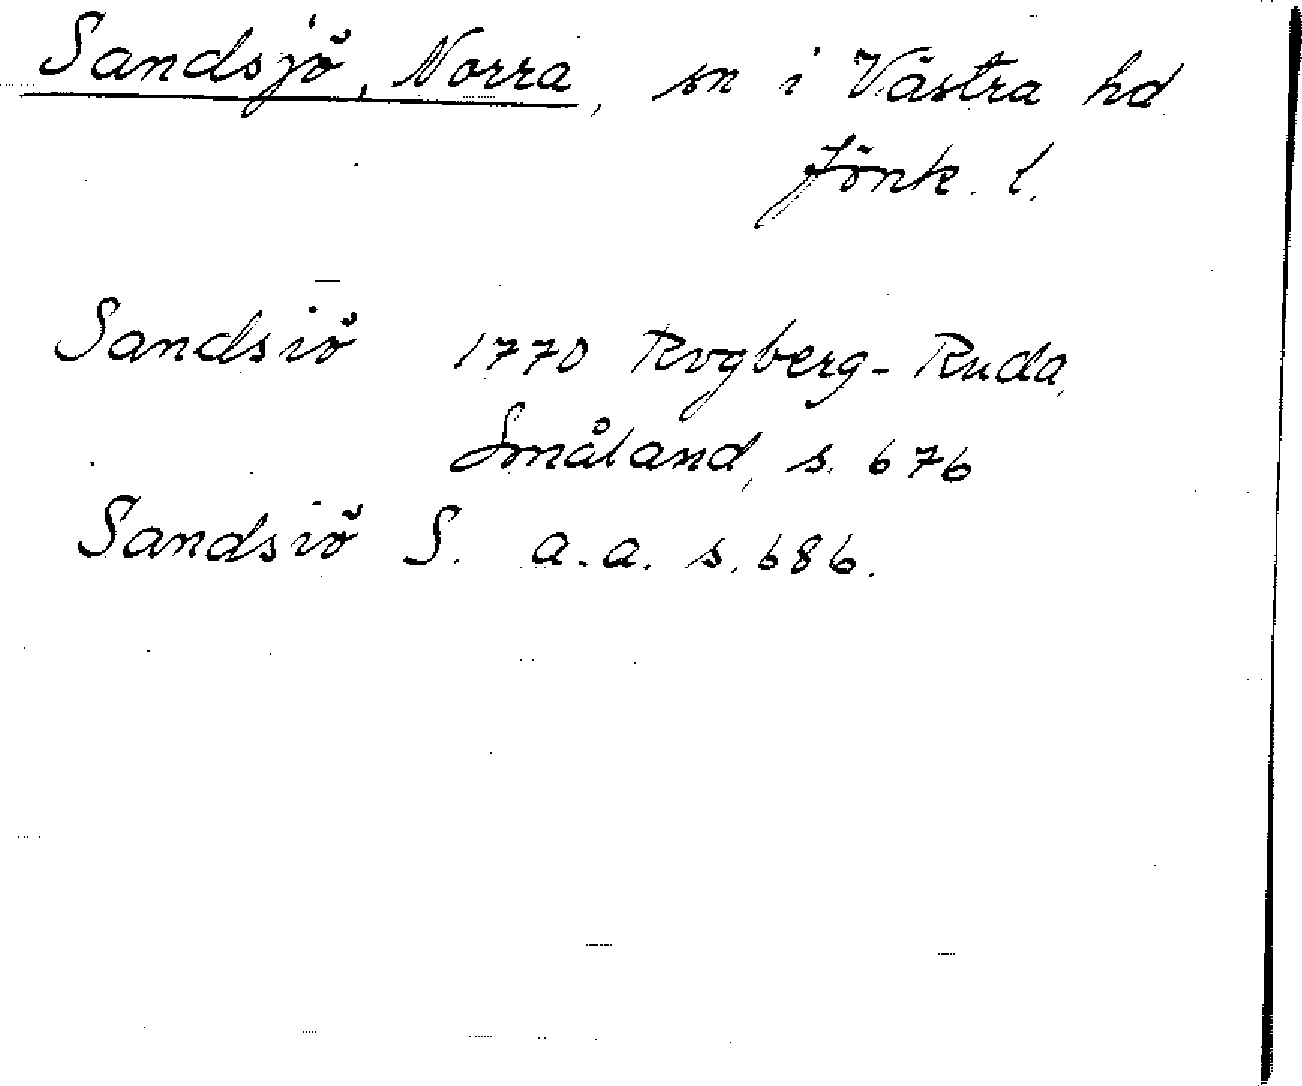 Sandsjö, Norra, sn i Västra hd
Jönk. l.
Sandsiö 1770 Rogberg-Ruda,
Småland, s. 676
Sandsiö S. a.a. s. 686.